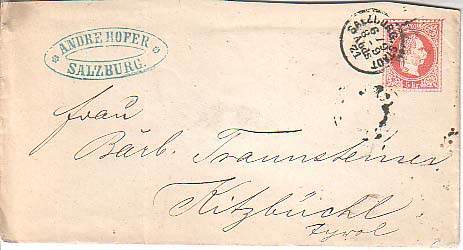 ANDRE HOFER
SALZBURG.
SALZBURG STADT
Frau
Barb. Traunsteiner
Kitzbüchl
Tyrol